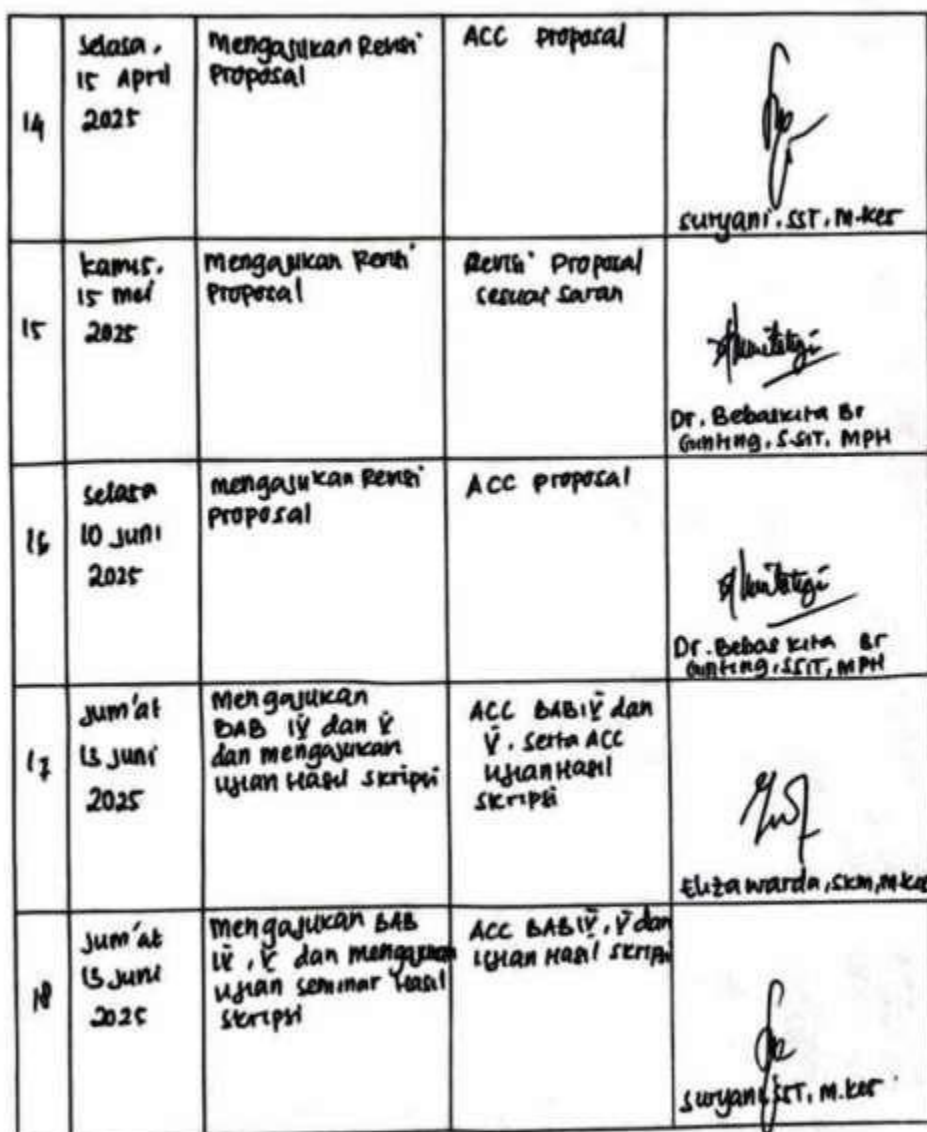 14
Selasa,
15 April
2025
Mengajukan Revisi
Proposal
ACC Proposal
Suryani, SST, M.Kes
15
Kamis,
15 Mei
2025
Mengajukan Revisi
Proposal
Revisi Proposal
sesuai saran
Dr. Bebaskita Br
Ginting, S.SiT, MPH
16
Selasa
10 Juni
2025
Mengajukan Revisi
Proposal
ACC Proposal
Dr. Bebas kita Br
Ginting, SSiT, MPH
17
Jum'at
13 Juni
2025
Mengajukan
BAB IV dan V
dan mengajukan
Ujian Hasil Skripsi
ACC BAB IV dan
V. Serta ACC
Ujian Hasil
Skripsi
Elizawarda, SKM, M.Kes
18
Jum'at
13 Juni
2025
Mengajukan BAB
IV, V dan mengajukan
Ujian seminar Hasil
Skripsi
ACC BAB IV, V dan
Ujian Hasil Skripsi
Suryani, SST, M.Kes